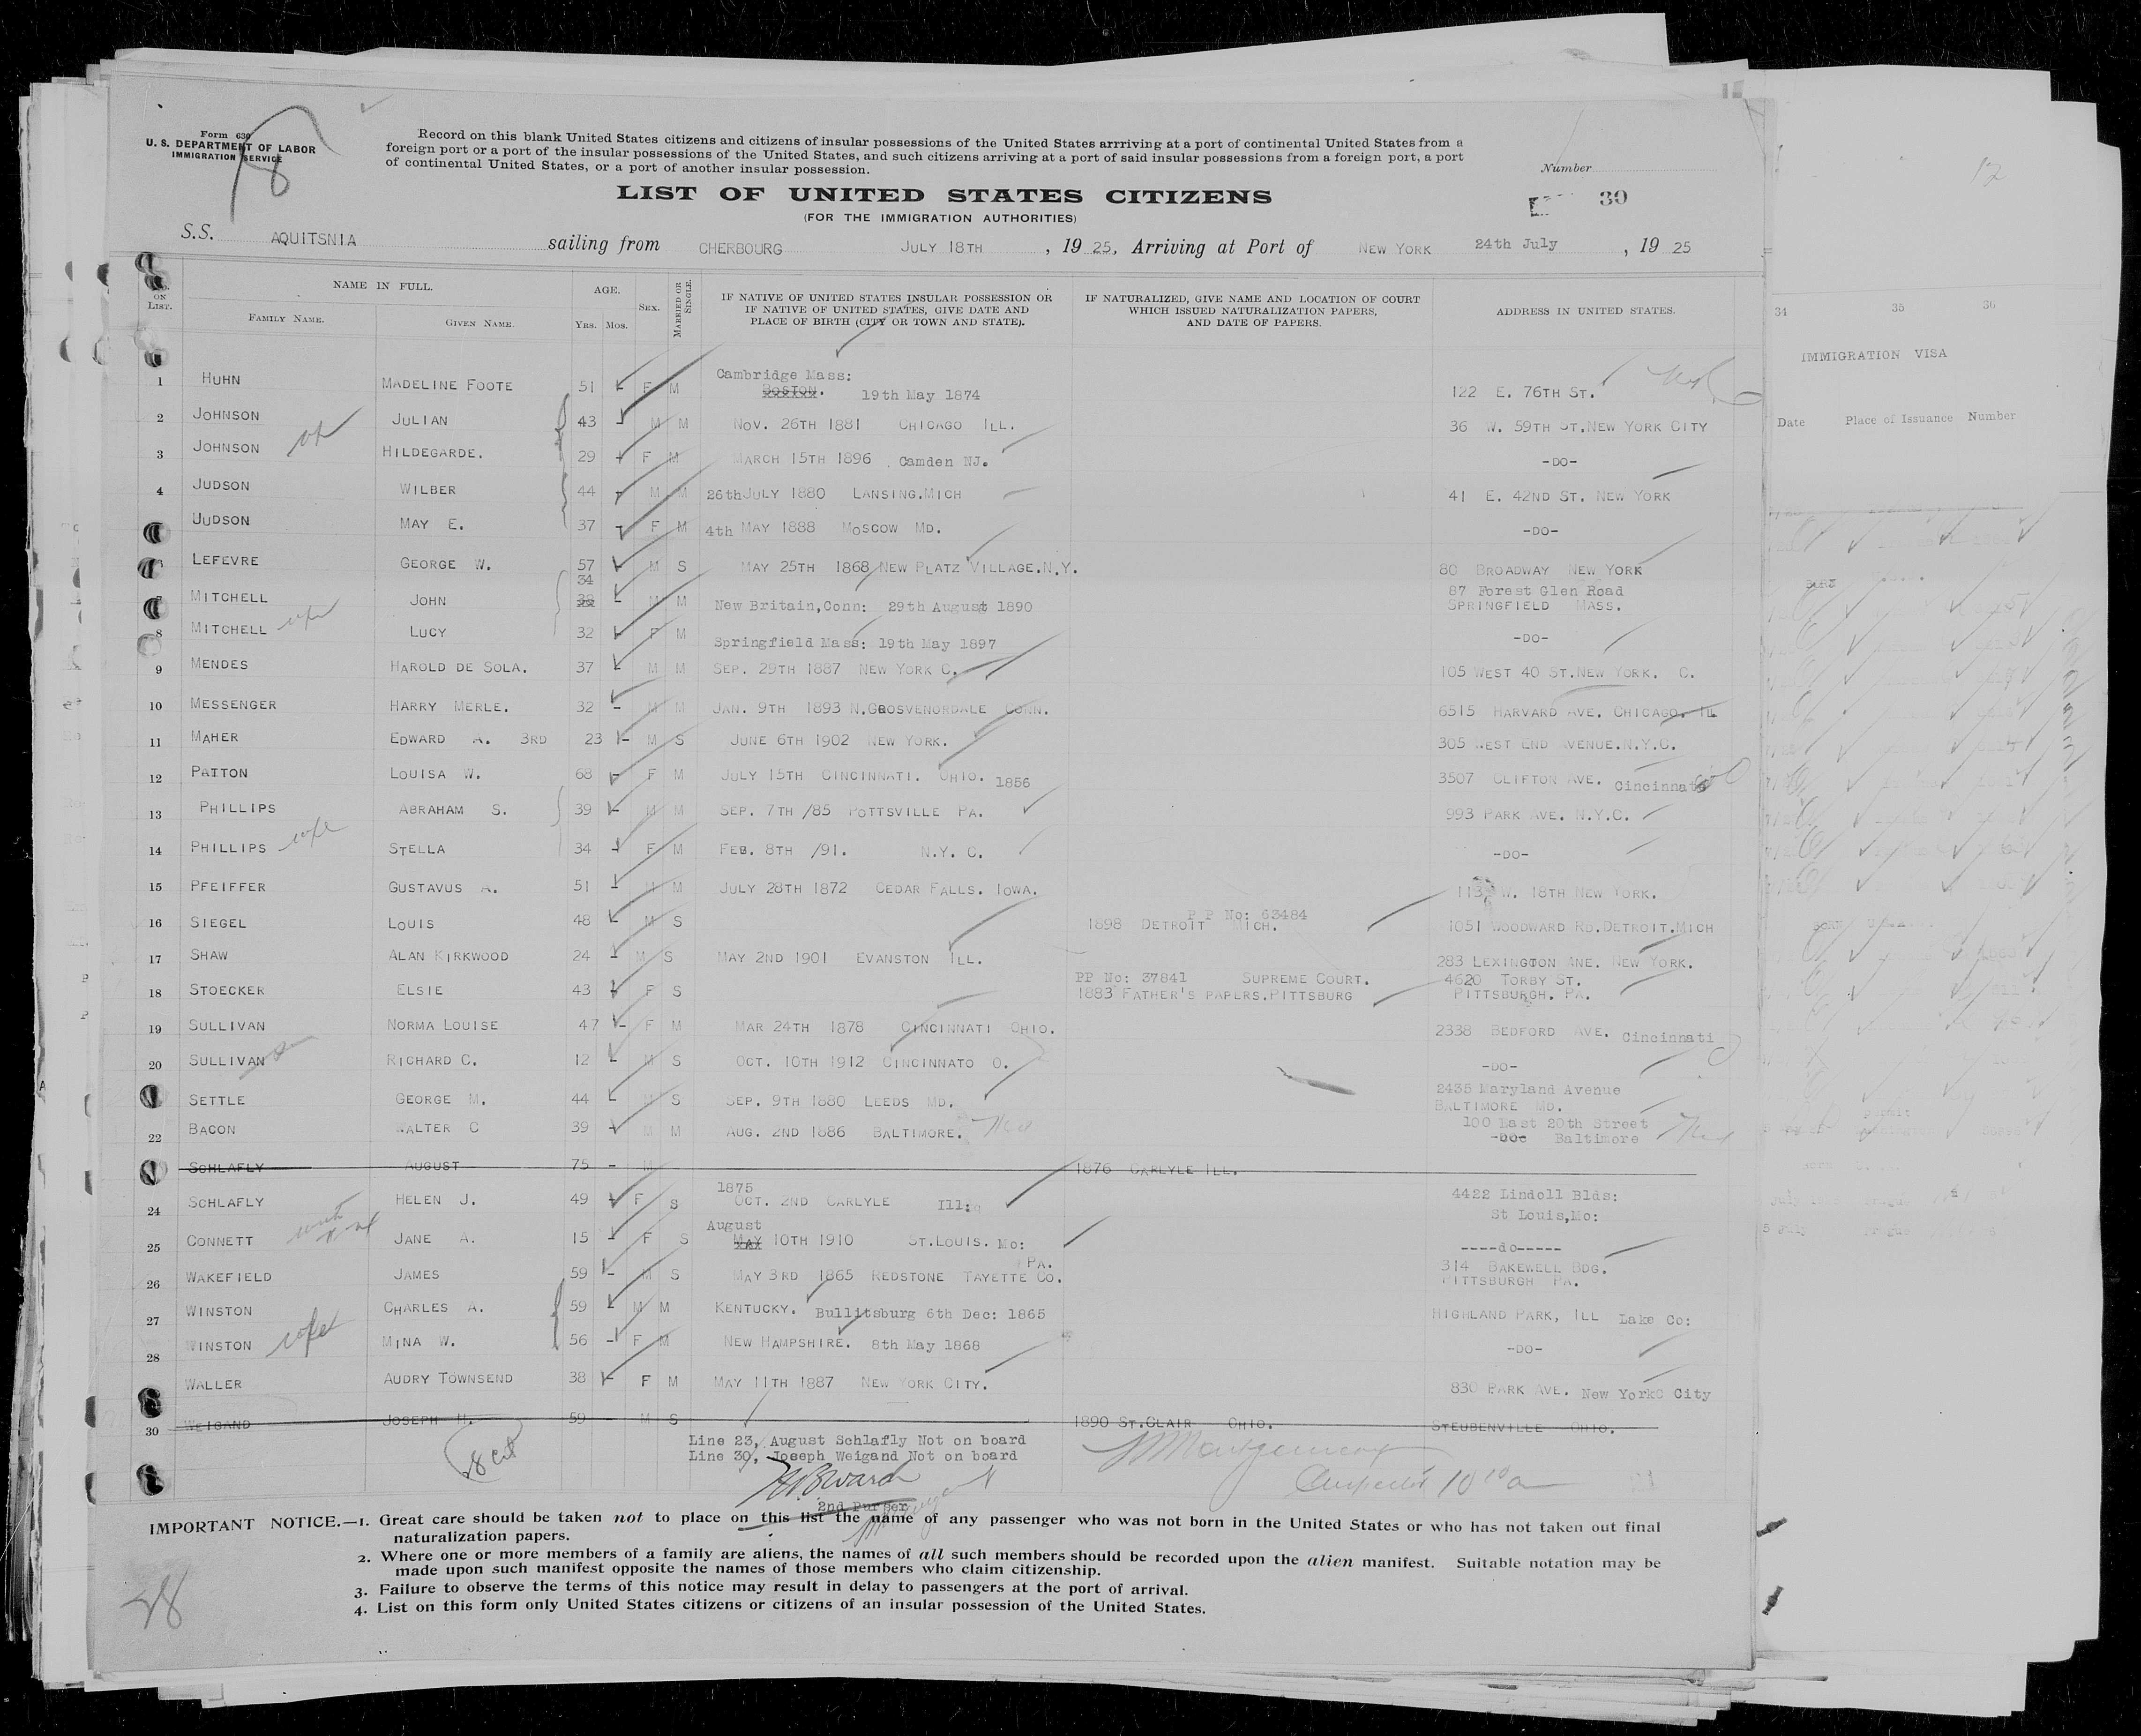 Form 630
U. S. DEPARTMENT OF LABOR
IMMIGRATION SERVICE
Record on this blank United States citizens and citizens of insular possessions of the United States arrriving at a port of continental United States from a
foreign port or a port of the insular possessions of the United States, and such citizens arriving at a port of said insular possessions from a foreign port, a port
of continental United States, or a port of another insular possession.
Number
LIST OF UNITED STATES CITIZENS
30
(FOR THE IMMIGRATION AUTHORITIES)
S.S. AQUITSNIA sailing from CHERBOURG JULY 18TH , 19 25, Arriving at Port of NEW YORK 24th July , 19 25
ON LIST. NAME IN FULL. FAMILY NAME. GIVEN NAME. AGE. Yrs. Mos. SEX. MARRIED OR SINGLE.
IF NATIVE OF UNITED STATES INSULAR POSSESSION OR
IF NATIVE OF UNITED STATES, GIVE DATE AND
PLACE OF BIRTH (CITY OR TOWN AND STATE).
IF NATURALIZED, GIVE NAME AND LOCATION OF COURT
WHICH ISSUED NATURALIZATION PAPERS,
AND DATE OF PAPERS.
ADDRESS IN UNITED STATES.
1 HUHN MADELINE FOOTE 51 - F M Cambridge Mass: BOSTON. 19th May 1874 122 E. 76TH ST.
2 JOHNSON JULIAN 43 - M M NOV. 26TH 1881 CHICAGO ILL. 36 W. 59TH ST.NEW YORK CITY
3 JOHNSON HILDEGARDE. 29 - F M MARCH 15TH 1896 . Camden NJ. -DO-
4 JUDSON WILBER 44 - M M 26thJULY 1880 LANSING.MICH 41 E. 42ND ST. NEW YORK
JUDSON MAY E. 37 - F M 4th MAY 1888 MOSCOW MD. -DO-
LEFEVRE GEORGE W. 57 - M S MAY 25TH 1868 NEW PLATZ VILLAGE.N.Y. 80 BROADWAY NEW YORK
7 MITCHELL JOHN 34 - M M New Britain,Conn: 29th August 1890 87 Forest Glen Road SPRINGFIELD MASS.
8 MITCHELL wife LUCY 32 - F M Springfield Mass: 19th May 1897 -DO-
9 MENDES HAROLD DE SOLA. 37 - M M SEP. 29TH 1887 NEW YORK C. 105 WEST 40 ST.NEW YORK. C.
10 MESSENGER HARRY MERLE. 32 - M M JAN. 9TH 1893 N.GROSVENORDALE CONN. 6515 HARVARD AVE. CHICAGO. ILL
11 MAHER EDWARD A. 3RD 23 - M S JUNE 6TH 1902 NEW YORK. 305 WEST END AVENUE.N.Y.C.
12 PATTON LOUISA W. 68 - F M JULY 15TH CINCINNATI. OHIO. 1856 3507 CLIFTON AVE. Cincinnati
13 PHILLIPS ABRAHAM S. 39 - M M SEP. 7TH /85 POTTSVILLE PA. 993 PARK AVE. N.Y.C.
14 PHILLIPS wife STELLA 34 - F M FEB. 8TH /91. N.Y. C. -DO-
15 PFEIFFER GUSTAVUS A. 51 - M M JULY 28TH 1872 CEDAR FALLS. IOWA. 113 W. 18TH NEW YORK.
16 SIEGEL LOUIS 48 - M S P P No: 63484 1898 DETROIT MICH. 1051 WOODWARD RD.DETROIT.MICH
17 SHAW ALAN KIRKWOOD 24 - M S MAY 2ND 1901 EVANSTON ILL. 283 LEXINGTON ANE. NEW YORK.
18 STOECKER ELSIE 43 - F S PP No: 37841 SUPREME COURT. 1883 FATHER'S PAPERS.PITTSBURG 4620 TORBY ST. PITTSBURGH. PA.
19 SULLIVAN NORMA LOUISE 47 - F M MAR 24TH 1878 CINCINNATI OHIO. 2338 BEDFORD AVE. Cincinnati
20 SULLIVAN son RICHARD C. 12 - M S OCT. 10TH 1912 CINCINNATO O. -DO-
SETTLE GEORGE M. 44 - M S SEP. 9TH 1880 LEEDS MD. 2435 Maryland Avenue BALTIMORE MD.
22 BACON WALTER C 39 - M M AUG. 2ND 1886 BALTIMORE. 100 East 20th Street -DO- Baltimore
SCHLAFLY AUGUST 75 - M 1876 CARLYLE ILL.
24 SCHLAFLY HELEN J. 49 - F S 1875 OCT. 2ND CARLYLE Ill: 4422 Lindoll Blds: St Louis,Mo:
25 CONNETT JANE A. 15 - F S August MAY 10TH 1910 ST.LOUIS. Mo: ----do-----
26 WAKEFIELD JAMES 59 - M S MAY 3RD 1865 REDSTONE TAYETTE CO. PA. 314 BAKEWELL BDG. PITTSBURGH PA.
27 WINSTON CHARLES A. 59 - M M KENTUCKY. Bullitsburg 6th Dec: 1865 HIGHLAND PARK, ILL Lake Co:
28 WINSTON wife MINA W. 56 - F M NEW HAMPSHIRE. 8th May 1868 -DO-
WALLER AUDRY TOWNSEND 38 - F M MAY 11TH 1887 NEW YORK CITY. 830 PARK AVE. New YorkC City
30 WEIGAND JOSEPH H. 59 - M S 1890 ST.CLAIR OHIO. STEUBENVILLE OHIO.
28 cit
Line 23, August Schlafly Not on board
Line 30, Joseph Weigand Not on board
2nd Purser
IMPORTANT NOTICE.—1. Great care should be taken not to place on this list the name of any passenger who was not born in the United States or who has not taken out final
naturalization papers.
2. Where one or more members of a family are aliens, the names of all such members should be recorded upon the alien manifest. Suitable notation may be
made upon such manifest opposite the names of those members who claim citizenship.
3. Failure to observe the terms of this notice may result in delay to passengers at the port of arrival.
4. List on this form only United States citizens or citizens of an insular possession of the United States.
28
12
34 35 36
IMMIGRATION VISA
Date Place of Issuance Number